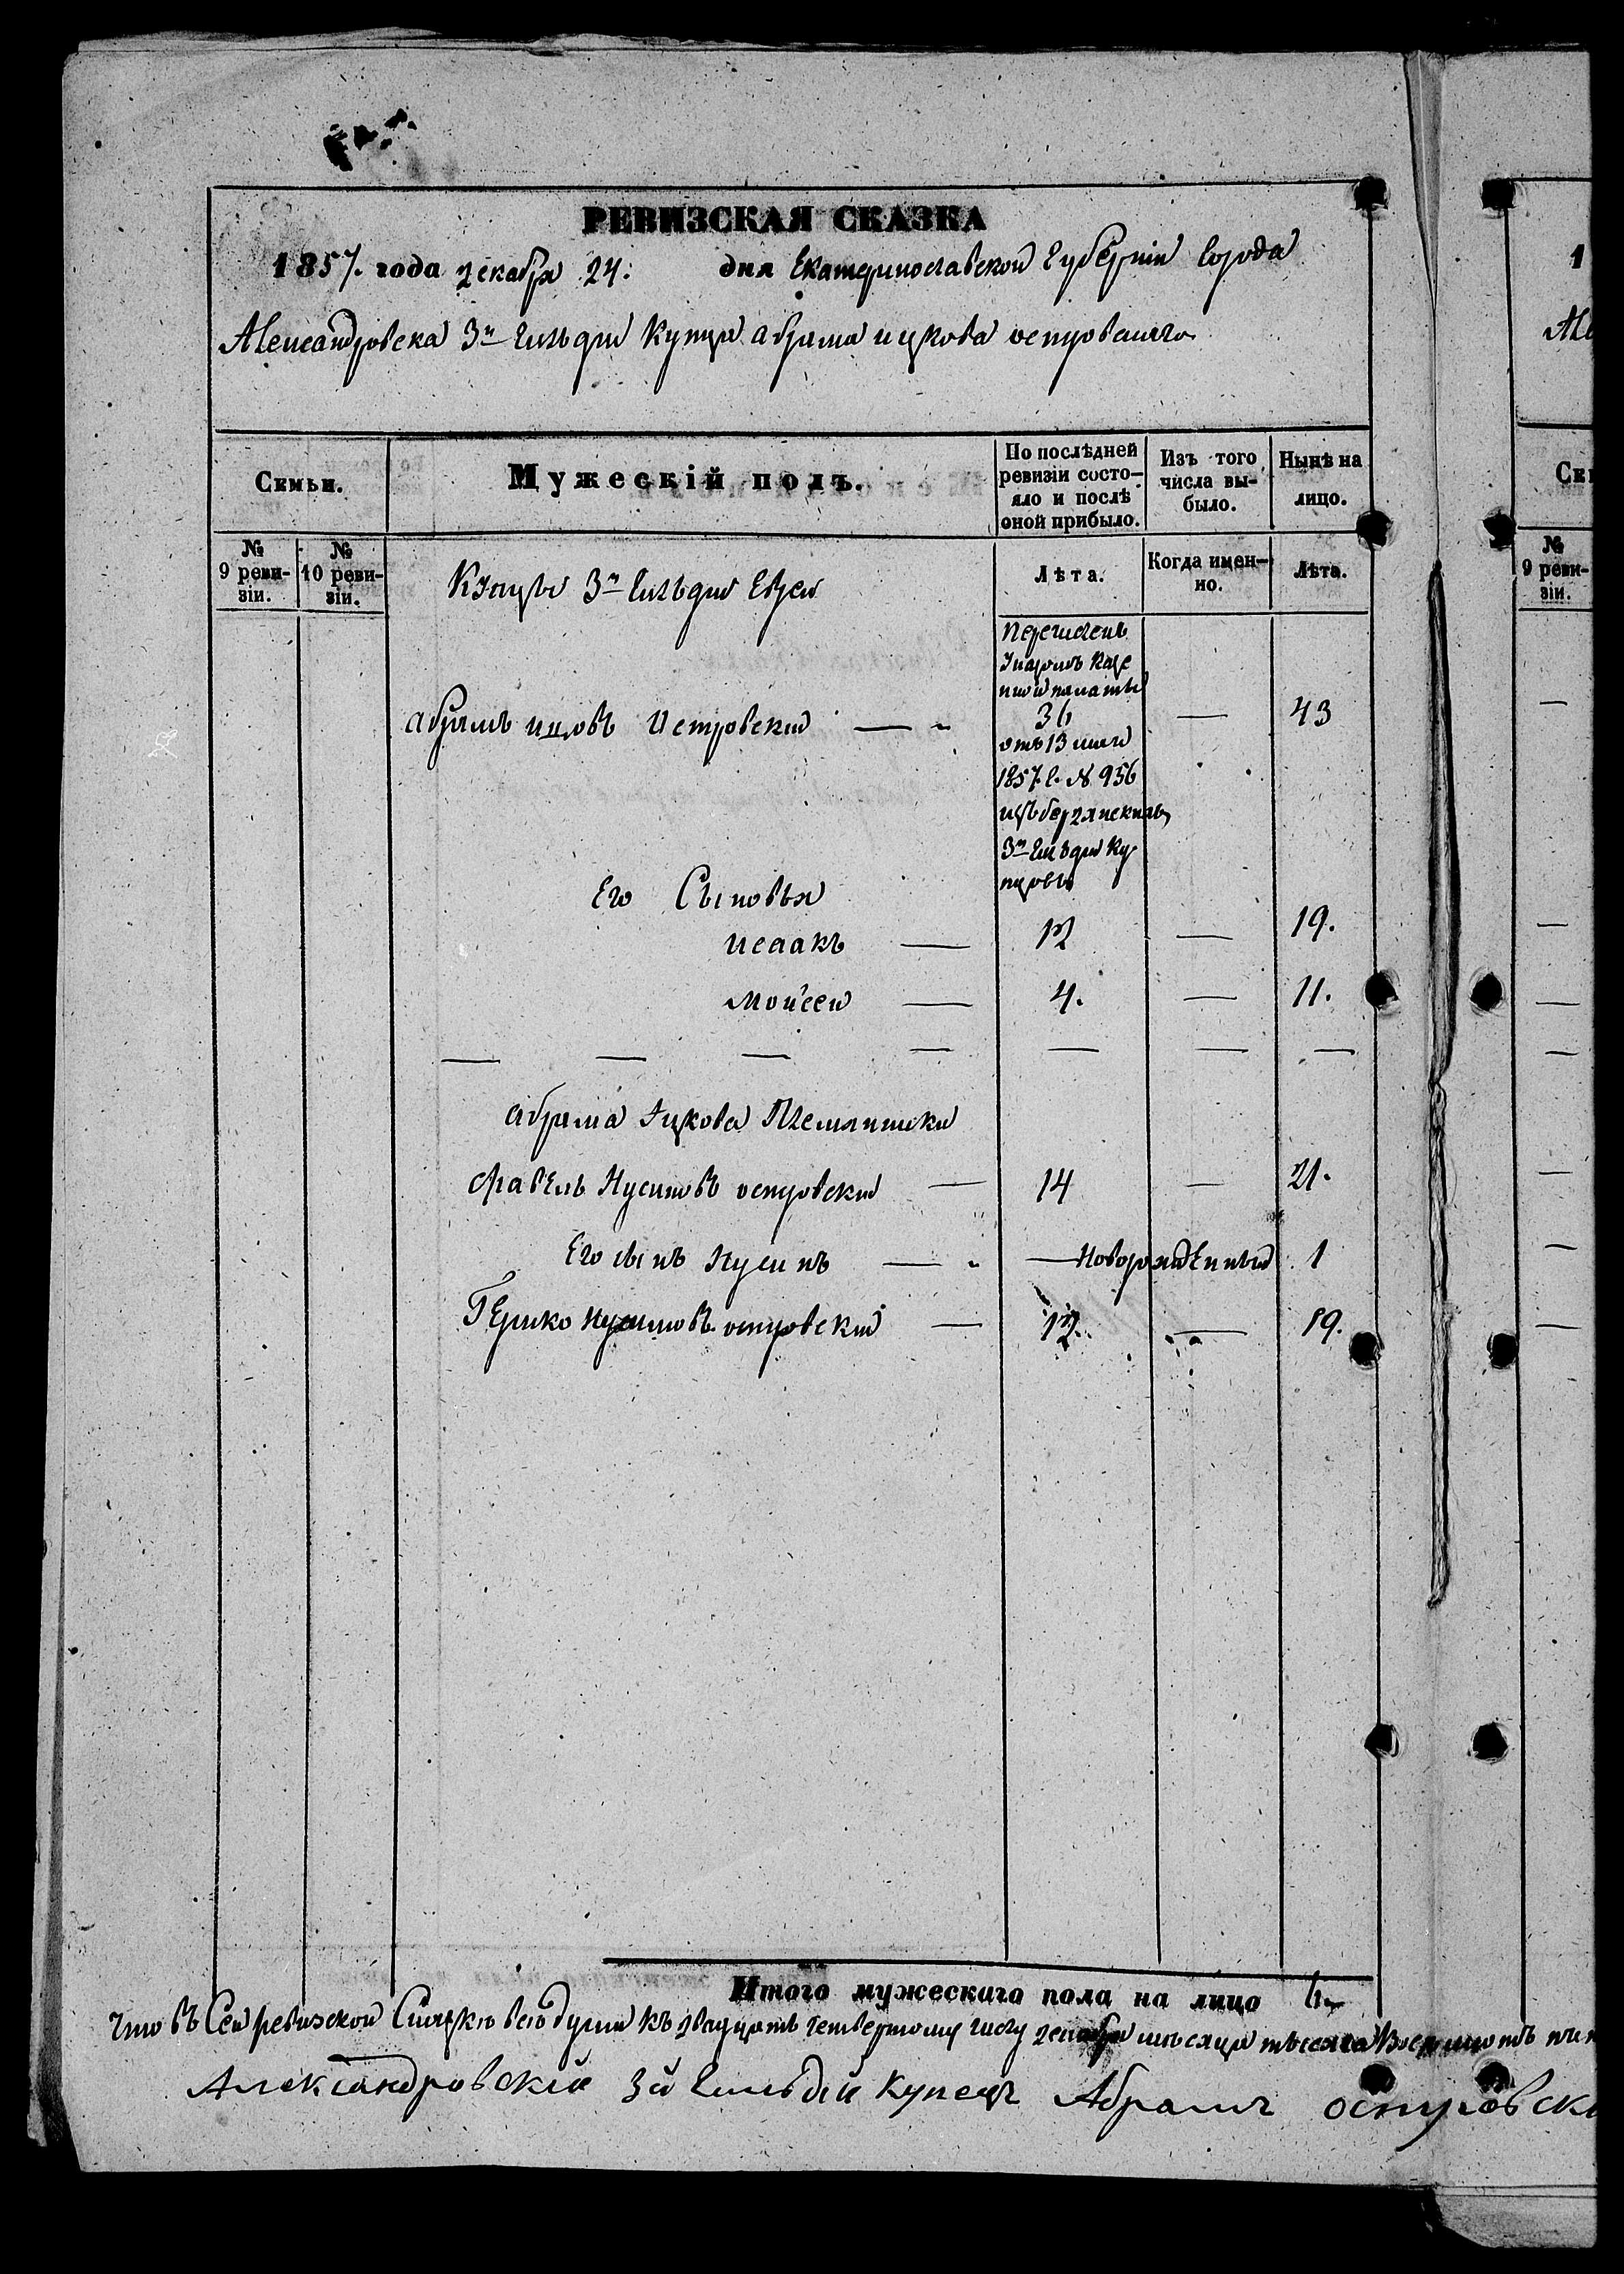 РЕВИЗСКАЯ СКАЗКА
1857. года декабря 24. дня Екатеринославской Губерніи города
Александровска 3й гильдіи купца абрама ицкова островскаго
Семьи.
Мужескій полъ.
По послѣдней ревизіи состо-
яло и послѣ
оной прибыло.
Изъ того
числа вы-
было.
Нынѣ на
лицо.
№
9 реви-
зіи.
№
10 реви-
зіи.
Купцы 3й гильдіи Евреи
Лѣта.
Когда имен-
но.
Лѣта.
Перечисленъ
Указомъ Казе
нной палаты
абрамъ ицковъ Островский — 36 — 43
отъ 13 мая
1857 г. № 956
изъ бердянскихъ
3й гильдіи ку
пцовъ
Его Сыновья
Исаакъ — 12 — 19.
Мойсей — 4. — 11.
— — — — — — —
абрама Ицкова Племянники
Файвель Нусимовъ островский — 14 — 21.
Его сынъ Нусимъ — — Новорожденный 1
Гершко Нусимовъ островский — 12. — 19.
Итого мужескаго пола на лицо 6.
что въ Сей ревизской Сказкѣ всѣ души къ двадцать четвертому числу декабря мѣсяца тысяча Восемьсотъ
Александровскій 3й Гильдій купецъ Абрамъ островск
№
9 реви-
зіи.